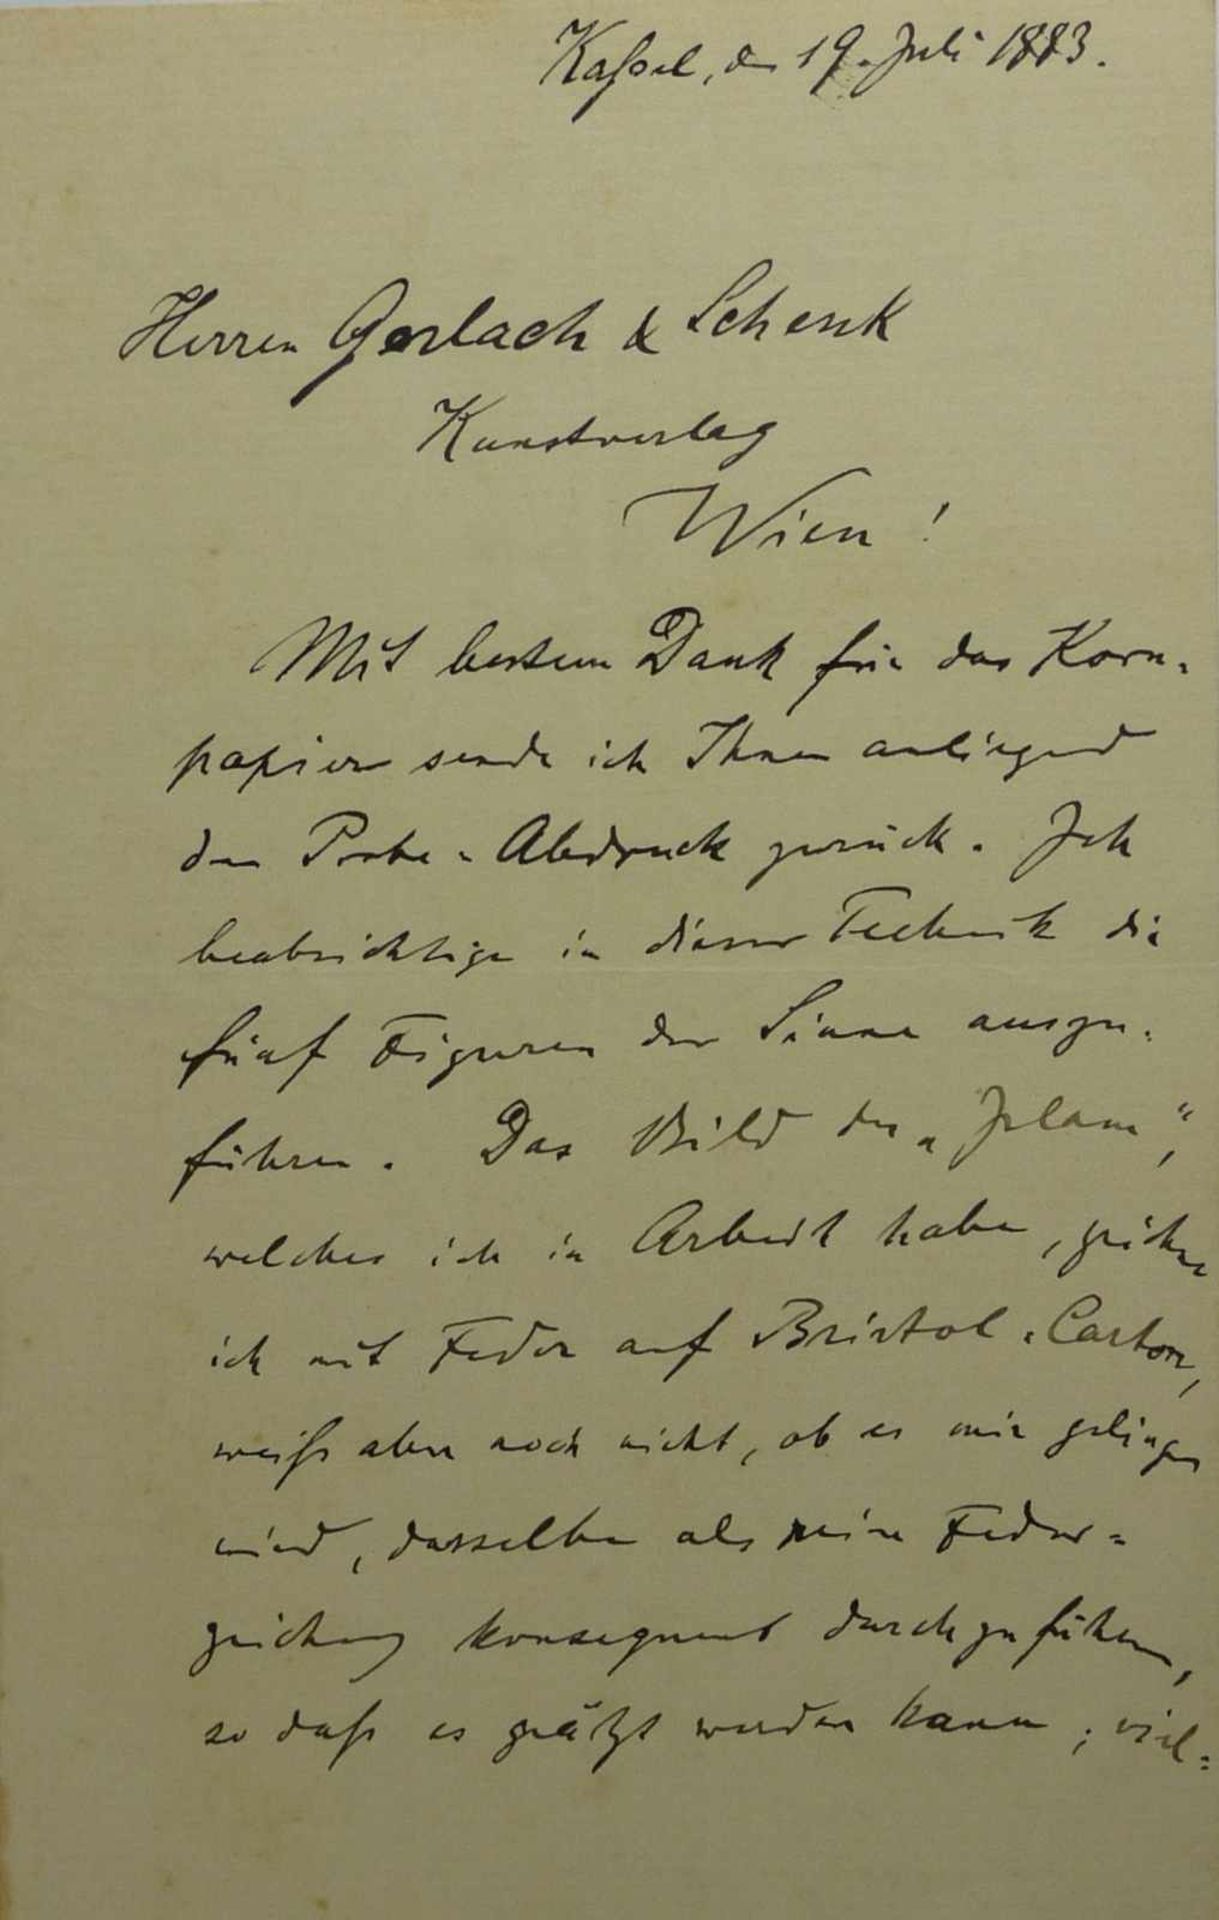 Kaßel, den 19. Juli 1883.
Herren Gerlach & Schenk
Kunstverlag
Wien!
Mit bestem Dank für das Korn-
papier sende ich Ihnen anliegend
den Probe-Abdruck zurück. Ich
beabsichtige in dieser Technik die
fünf Figuren der Sinne auszu-
führen. Das Bild des „Islam“,
welches ich in Arbeit habe, zeichne
ich mit Feder auf Bristol-Carton,
weiß aber noch nicht, ob es mir gelingen
wird, dasselbe als reine Feder=
zeichnung konsequent durchzuführen,
so daß es geätzt werden kann; viel=